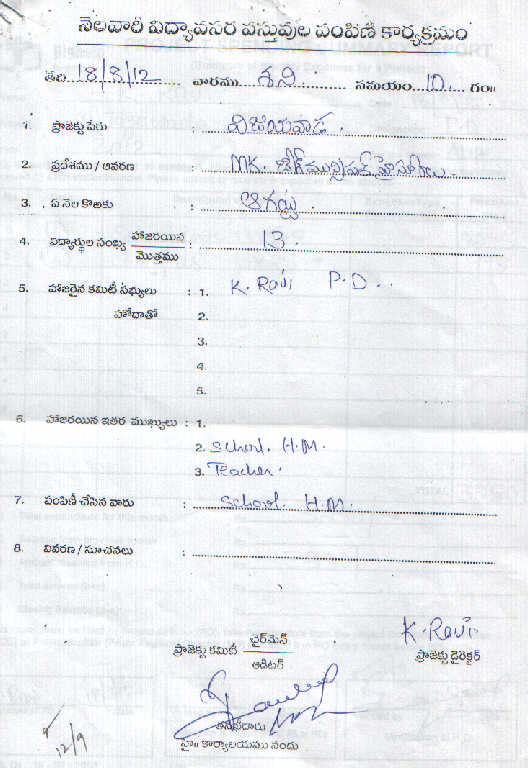 నెలవారీ విద్యావసర వస్తువుల పంపిణీ కార్యక్రమం
తేది 18/8/12 వారము శని సమయం 10 గం॥
1. ప్రాజెక్టు పేరు : విజయవాడ.
2. ప్రదేశము / ఆవరణ : MK. బేగ్ మున్సిపల్ హైస్కూలు.
3. ఏ నెల కొఱకు : ఆగష్టు.
4. విద్యార్థుల సంఖ్య హాజరయిన : 13.
మొత్తము
5. హాజరైన కమిటీ సభ్యులు : 1. K. Ravi P.D..
హోదాతో 2.
3.
4.
5.
6. హాజరయిన ఇతర ముఖ్యులు : 1.
2. School. H.M.
3. Teacher.
7. పంపిణీ చేసిన వారు : School. H.M.
8. వివరణ / సూచనలు :
K. Ravi
ప్రాజెక్టు కమిటీ ఛైర్మెన్ ప్రాజెక్టు డైరెక్టర్
ఆడిటర్
హై॥ కార్యాలయము నందు
12/9